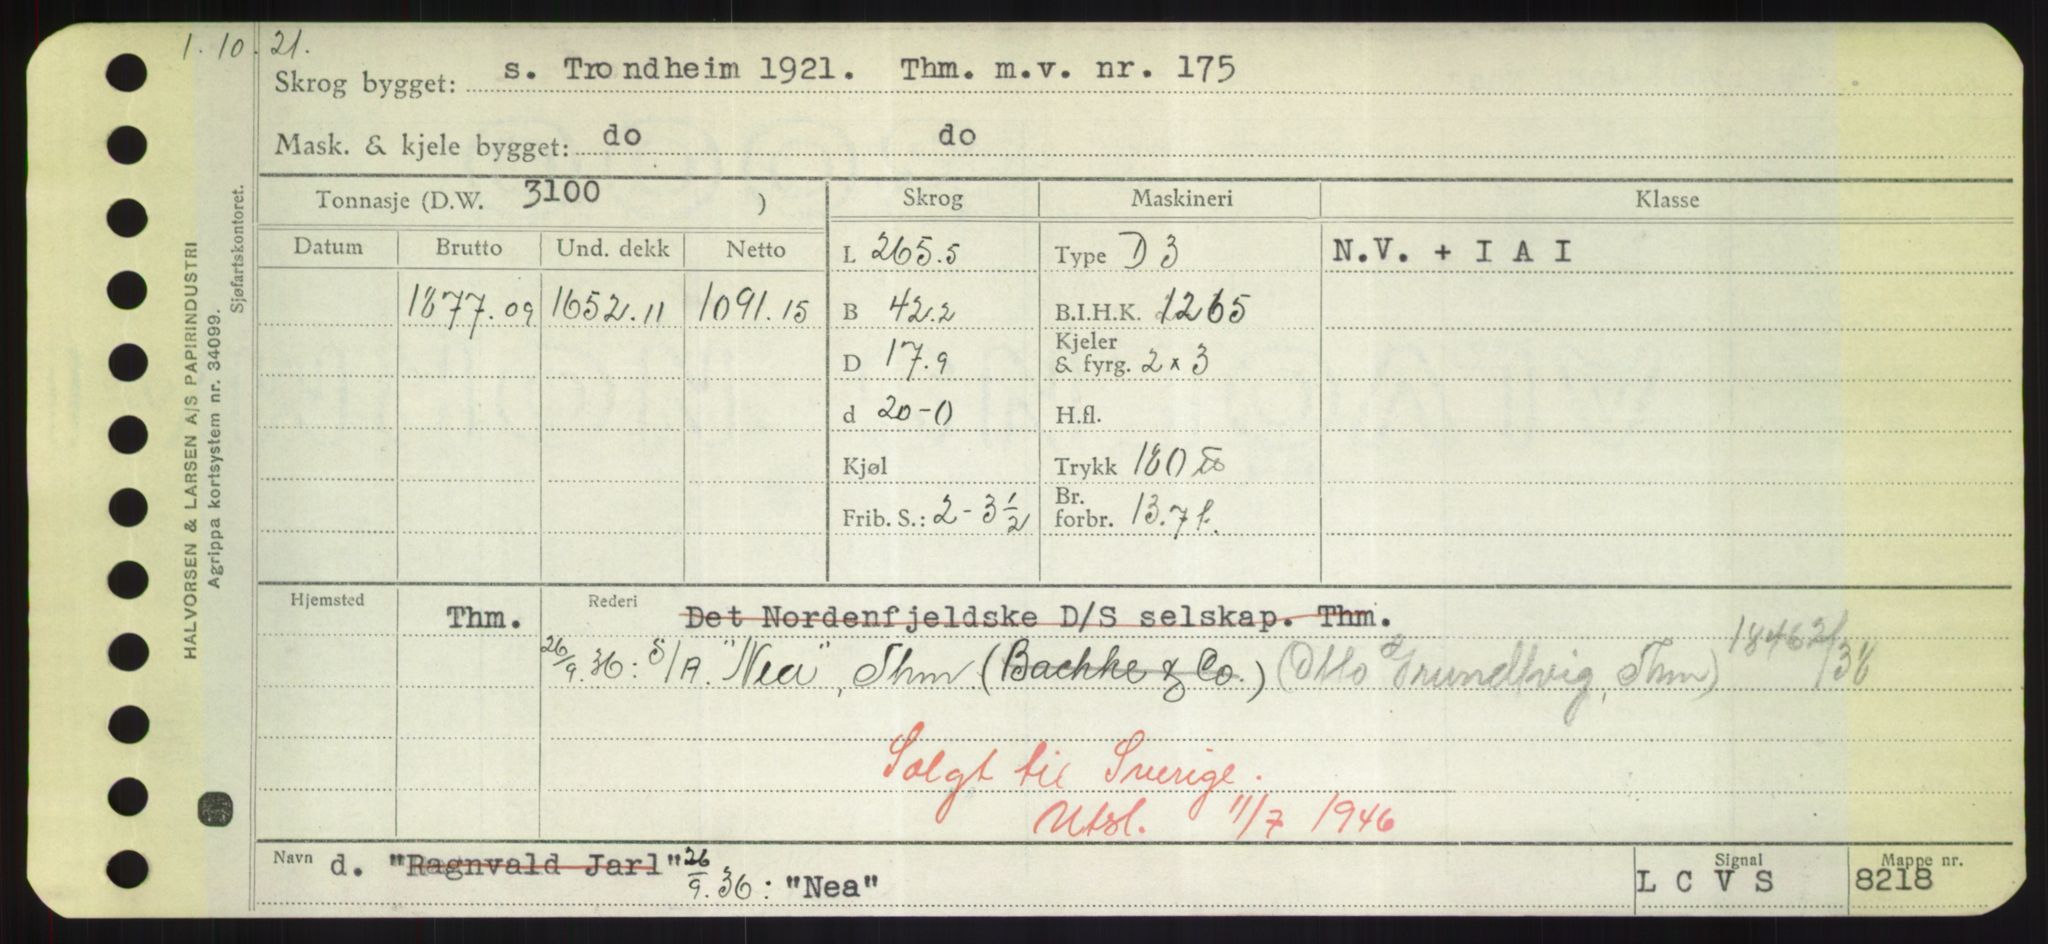 1.10.21.
Skrog bygget: s. Trondheim 1921. Thm. m.v. nr. 175
Mask. & kjele bygget: do do
Tonnasje (D.W. 3100 ) Skrog Maskineri Klasse
Datum Brutto Und. dekk Netto L 265.5 Type D 3 N.V. + I A I
1877.09 1652.11 1091.15 B 42.2 B.I.H.K. 1265
D 17.9 Kjeler & fyrg. 2 x 3
d 20-0 H.fl.
Kjøl Trykk 180
Frib. S.: 2 - 3 1/2 Br. forbr. 13.7 t.
Hjemsted Thm. Rederi Det Nordenfjeldske D/S selskap. Thm.
26/9.36: S/A. "Nea", Thm (Bachke & Co.) (Otto Grundtvig, Thm)
Solgt til Sverige.
Utsl. 11/7 1946
Navn d. "Ragnvald Jarl" 26/9.36: "Nea" Signal L C V S Mappe nr. 8218
HALVORSEN & LARSEN A/S PAPIRINDUSTRI
Agrippa kortsystem nr. 34099.
Sjøfartskontoret.